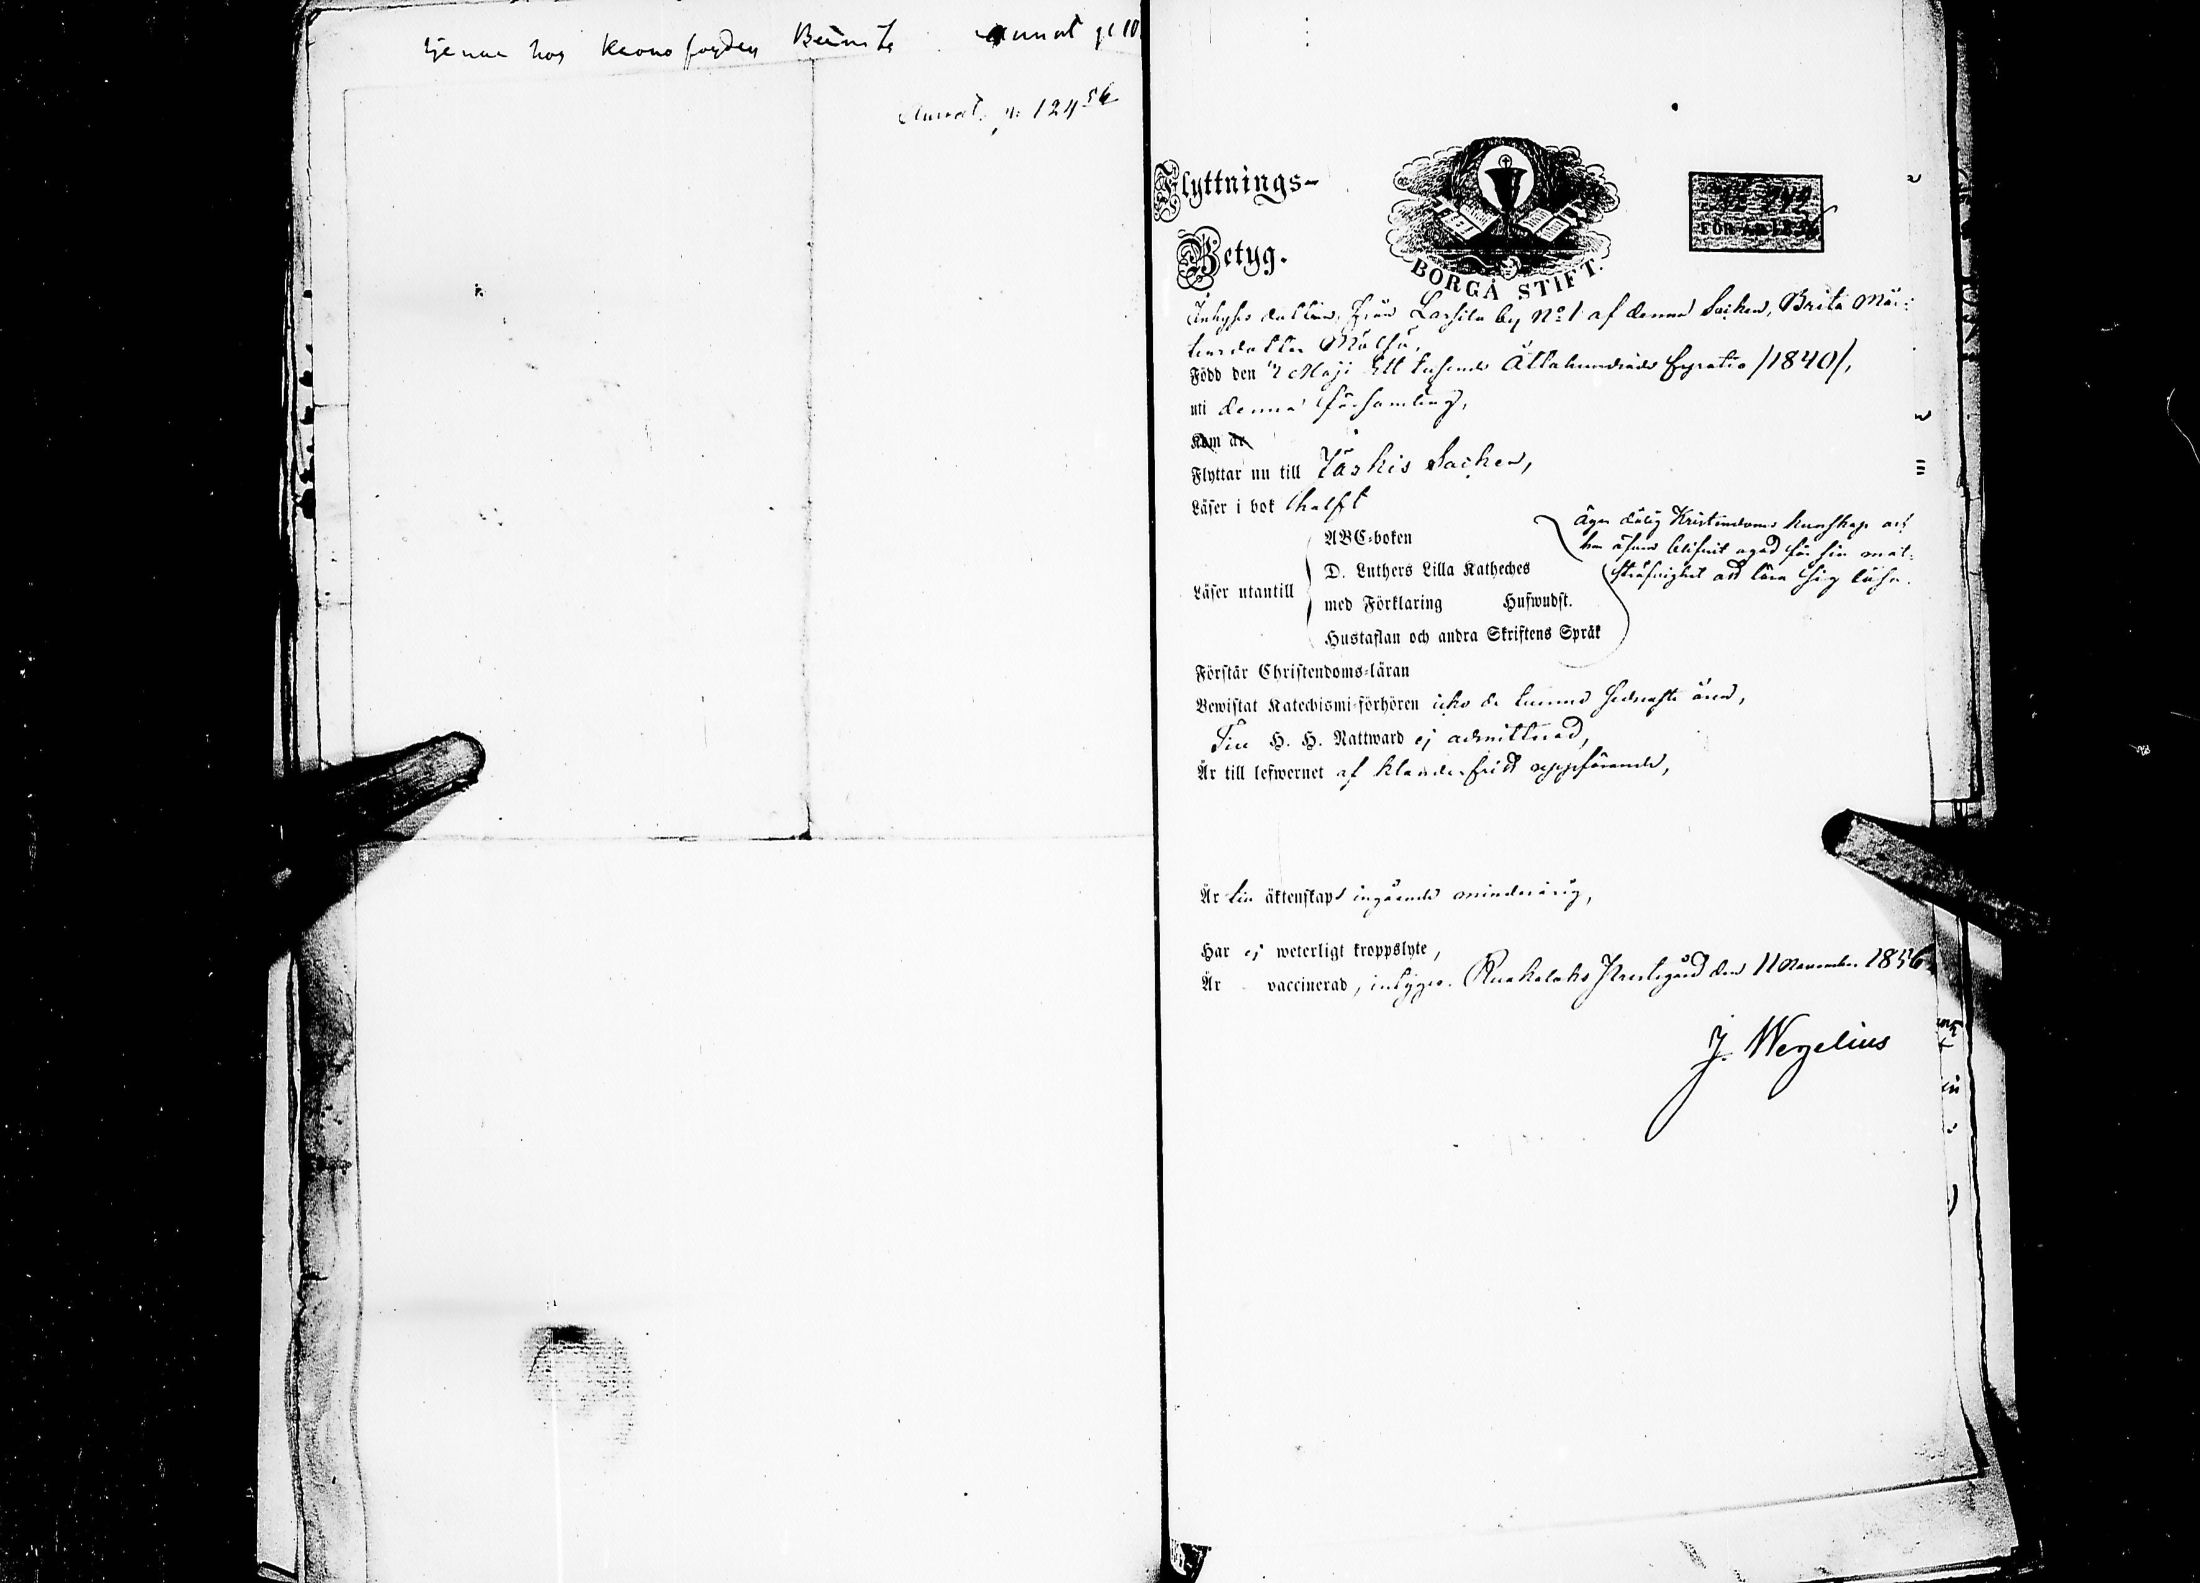 tjenar hos Kronofogden
Annot. p. 124 56
Flyttnings-
Betyg.
BORGÅ STIFT.
FÖR
Inhyses dottren från Lassila by No 1 af denna Socken, Brita Mår-
tensdotter
Född den 2 Maji Ett tusende Åttahundrade fyratio /1840/,
uti denna församling,
Kom år
Flyttar nu till Jäskis Socken,
Läser i bok halft
ABC-boken
D. Luthers Lilla Katheches
Läser utantill
med Förklaring Hufwudst.
Hustaflan och andra Skriftens Språk
äger dålig Kristendoms kunskap och
har äfven blifvit agad för sin mot-
sträfvighet att lära sig läsa.
Förstår Christendoms-läran
Bewistat Katechismi-förhören icke de tvenne sednaste åren,
Till H. H. Nattward ej admitterad,
Är till lefwernet af klanderfritt uppförande,
Är till äktenskaps ingående minderårig,
Har ej weterligt kroppslyte,
Är vaccinerad, intygar. Ruokolaks Prestegård den 11 November 1856.
J. Wegelius